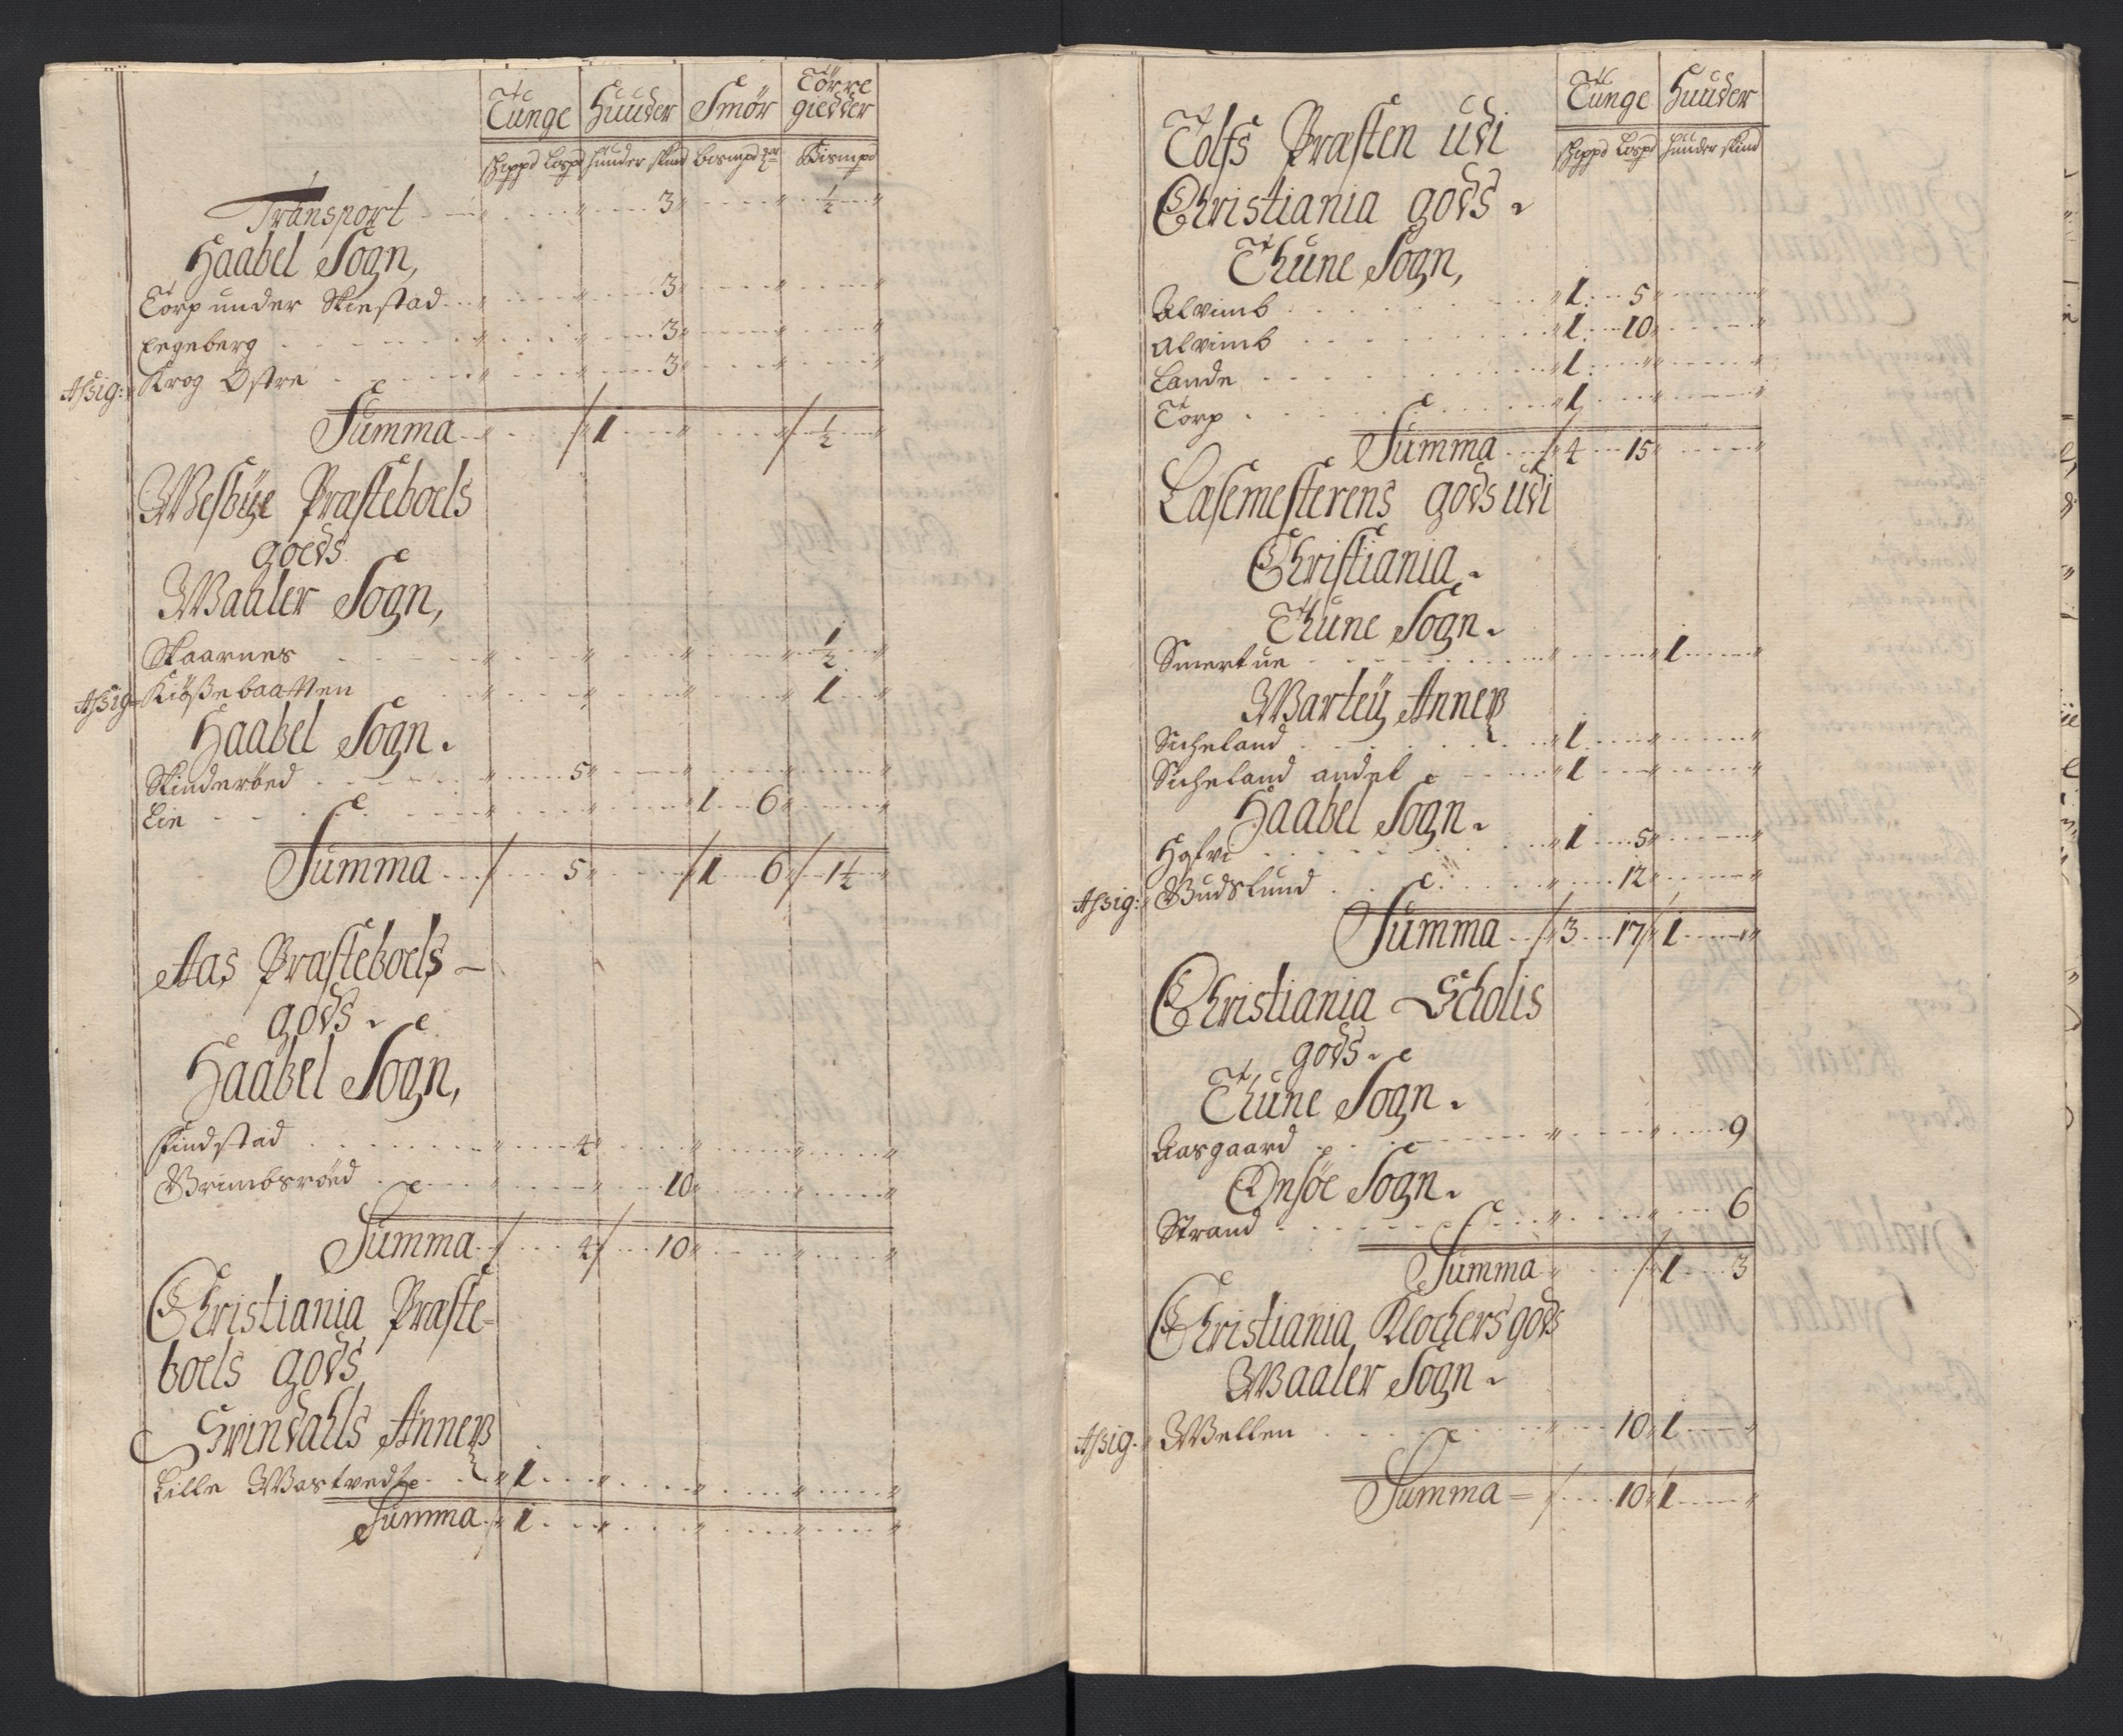 Tunge Huuder Smör Törre giedder
Schippd Lospd huuder skind bosmpd mr Bismpd
Transport 3 ½
Haabel Sogn,
Torp under Skiestad 3
Legeberg 3
Assig: Krog Östre 3
Summa 1 ½
Wesbÿe Præsteboels
goeds
Waaler Sogn,
Skaarnes ½
Assig Kiössebaatten 1
Haabel Sogn.
Skinderöed 5
Lie 1 6
Summa 5 1 6 1½
Aas Præsteboels
gods.
Haabel Sogn,
Findstad 4
Brimbsröed 10
Summa 4 10
Christiania Præste-
boels gods
Svindahls Annex
Lille Wastvedt 1
Summa 1
Tunge Huuder
Schippd Lospd huuder skind
Tolfs Præsten udi
Christiania gods.
Thune Sogn,
Alvimb 1 5
Alvimb 1 10
Lande 1
Torp 1
Summa 4 15
Læsemesterens gods udi
Christiania.
Thune Sogn.
Smertue 1
Warteÿ Annex
Sicheland 1
Sicheland andel 1
Haabel Sogn.
Hafvi 1 5
Assig: Budslund 12
Summa 3 17 1
Christiania Scholis
gods.
Thune Sogn.
Aasgaard 9
Onsöe Sogn.
Strand 6
Summa 1 3
Christiania Klochers gods
Waaler Sogn.
Assig. Wellen 10 1
Summa 10 1